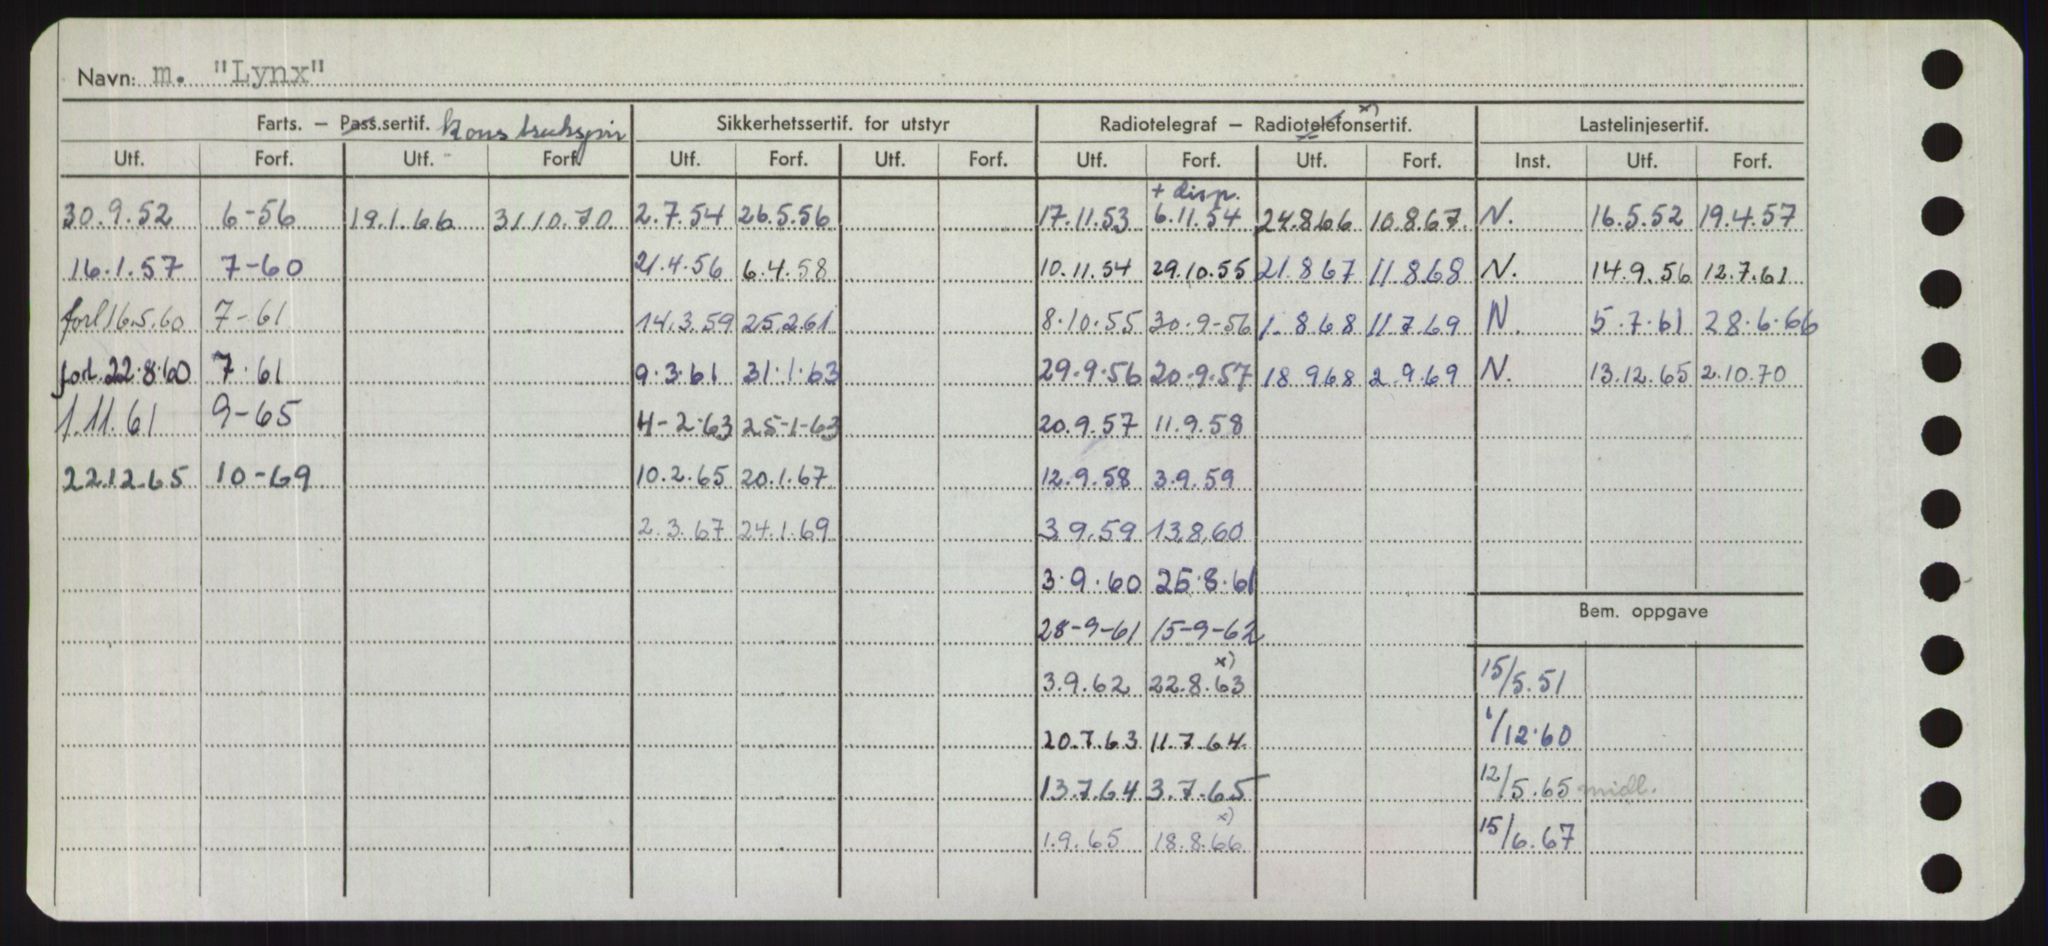 Navn: m. "Lynx"
Farts. – Pass.sertif. konstruksjon Sikkerhetssertif. for utstyr Radiotelegraf – Radiotelefonsertif. x) Lastelinjesertif.
Utf. Forf. Utf. Forf. Utf. Forf. Utf. Forf. Utf. Forf. Utf. Forf. Inst. Utf. Forf.
+ disp.
30.9.52 6-56 19.1.66 31.10.70. 2.7.54 26.5.56 17.11.53 6.11.54 24.8.66 10.8.67. N. 16.5.52 19.4.57
16.1.57 7-60 21.4.56 6.4.58 10.11.54 29.10.55 21.8.67 11.8.68 N. 14.9.56 12.7.61
forl 16.5.60 7-61 14.3.59 25.2.61 8.10.55 30.9-56 1.8.68 11.7.69 N. 5.7.61 28.6.66
forl. 22.8.60 7.61 9.3.61 31.1.63 29.9.56 20.9.57 18.9.68 2.9.69 N. 13.12.65 2.10.70
1.11.61 9-65 4-2-63 25-1-63 20.9.57 11.9.58
22.12.65 10-69 10.2.65 20.1.67 12.9.58 3.9.59
2.3.67 24.1.69 3.9.59 13.8.60
3.9.60 25.8.61
Bem. oppgave
28-9-61 15-9-62
x)
3.9.62 22.8.63 15/5.51
20.7.63 11.7.64. 6/12.60
13.7.64 3.7.65 12/5.65 midl.
x)
1.9.65 18.8.66 15/6.67